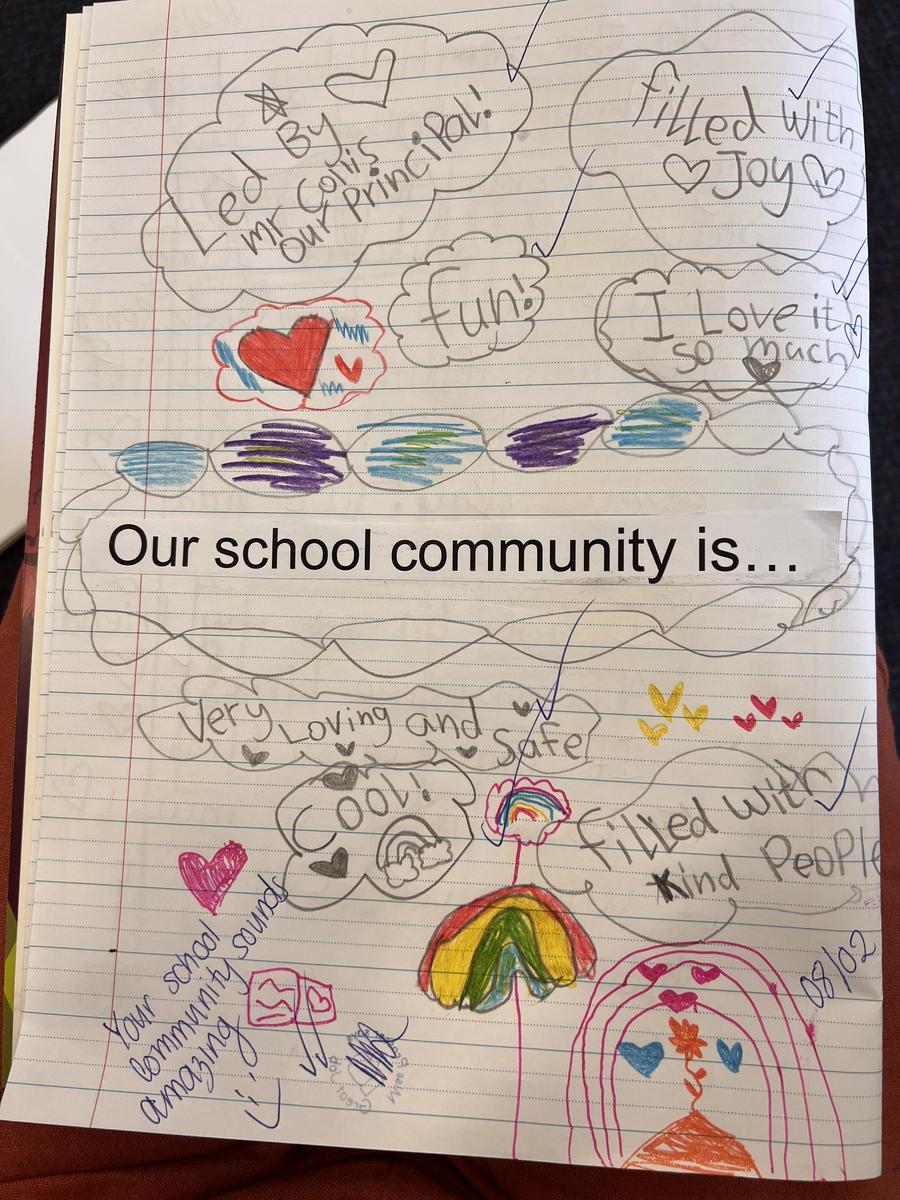 Led By
Mr Collis
Our Principal!
filled with
Joy
fun!
I Love it
so much
Our school community is...
Very Loving and
Safe
COOl!
filled with
kind PeoPle
08/02
Your school
community sounds
amazing :)